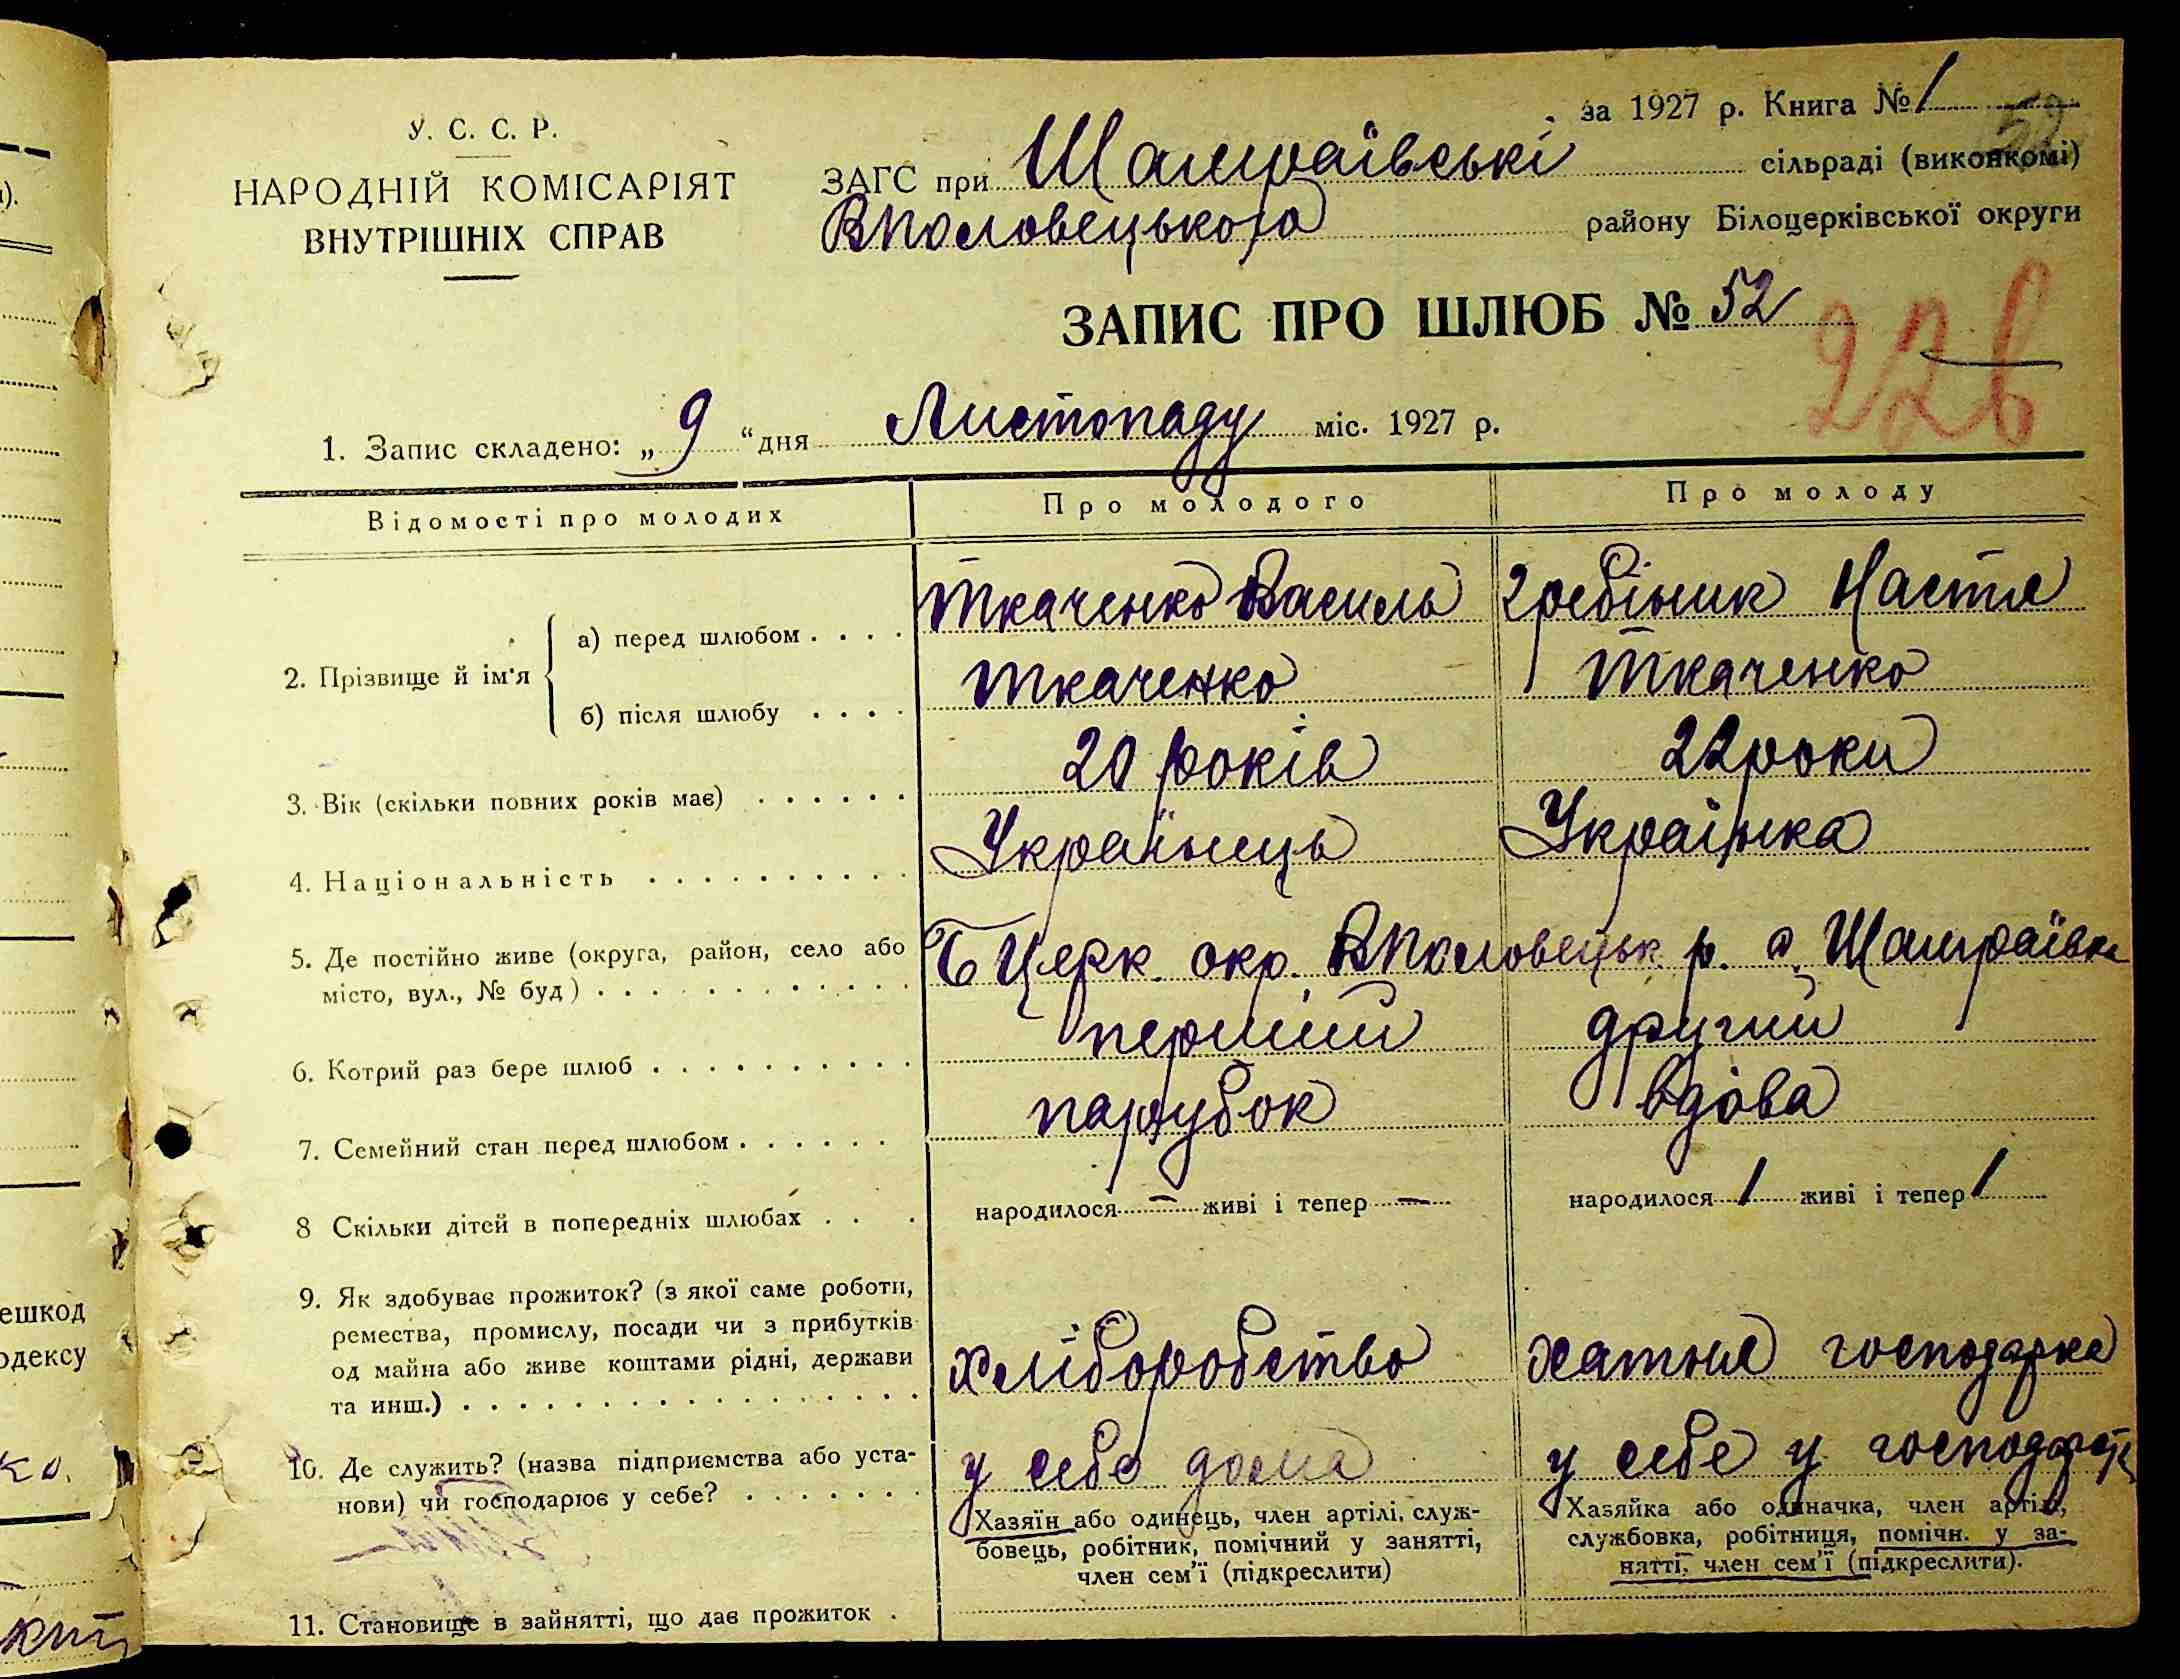 за 1927 р. Книга № 1
52
У. С. С. Р.
НАРОДНІЙ КОМІСАРІЯТ
ВНУТРІШНІХ СПРАВ
ЗАГС при Шамраївські сільраді (виконкомі)
ВПоловецького району Білоцерківської округи
ЗАПИС ПРО ШЛЮБ № 52
226
1. Запис складено: „ 9 “ дня Листопаду міс. 1927 р.
Відомості про молодих
Про молодого
Про молоду
2. Прізвище й ім'я
а) перед шлюбом . . . .
Ткаченко Василь
Гребіник Настя
б) після шлюбу . . . .
Ткаченко
Ткаченко
3. Вік (скільки повних років має) . . . . . .
20 років
22 роки
4. Національність . . . . . . . . . .
Українець
Українка
5. Де постійно живе (округа, район, село або
місто, вул., № буд) . . . . . . . . . . . .
БЦерк. окр. ВПоловецьк. р. с. Шамраївка
6. Котрий раз бере шлюб . . . . . . . . . .
перший
другий
7. Семейний стан перед шлюбом . . . . . .
парубок
вдова
8 Скільки дітей в попередніх шлюбах . . .
народилося – живі і тепер –
народилося 1 живі і тепер 1
9. Як здобуває прожиток? (з якої саме роботи,
ремества, промислу, посади чи з прибутків
од майна або живе коштами рідні, держави
та инш.) . . . . . . . . . . . . . . . . .
хліборобство
хатня господарка
10. Де служить? (назва підприємства або уста-
нови) чи господарює у себе? . . . . . . .
у себе дома
у себе у господарстві
Хазяїн або одинець, член артілі, служ-
бовець, робітник, помічний у занятті,
член сем'ї (підкреслити)
Хазяйка або одиначка, член артілі,
службовка, робітниця, помічн. у за-
нятті, член сем'ї (підкреслити).
11. Становище в зайнятті, що дає прожиток .
ешкод
одексу
ко.